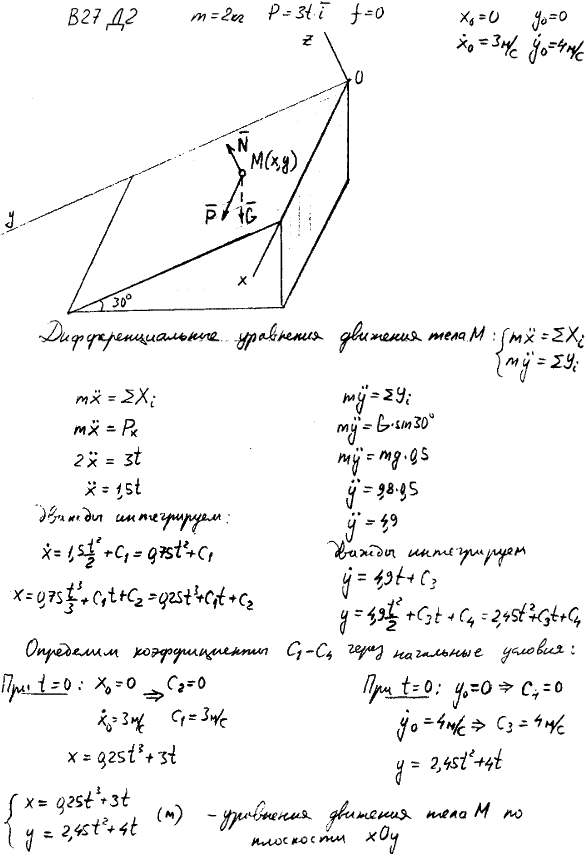 В27 Д2 m=2кг P̄=3t·ī f=0 x₀=0 y₀=0
ẋ₀=3м/с ẏ₀=4м/с
z
O
N̄
M(x,y)
y
P̄
Ḡ
x
30°
Дифференциальные уравнения движения тела М: { mẍ=ΣXᵢ
mÿ=ΣYᵢ
mẍ=ΣXᵢ
mẍ=Pₓ
2ẍ=3t
ẍ=1,5t
дважды интегрируем:
ẋ=1,5t²/2+C₁=0,75t²+C₁
x=0,75t³/3+C₁t+C₂=0,25t³+C₁t+C₂
mÿ=ΣYᵢ
mÿ=G·sin30°
mÿ=mg·0,5
ÿ=9,8·0,5
ÿ=4,9
дважды интегрируем
ẏ=4,9t+C₃
y=4,9t²/2+C₃t+C₄=2,45t²+C₃t+C₄
Определим коэффициенты C₁-C₄ через начальные условия:
При t=0: x₀=0 ⇒ C₂=0
ẋ₀=3м/с C₁=3м/с
x=0,25t³+3t
При t=0: y₀=0 ⇒ C₄=0
ẏ₀=4м/с ⇒ C₃=4м/с
y=2,45t²+4t
{ x=0,25t³+3t
y=2,45t²+4t (м) - уравнения движения тела М по
плоскости xOy